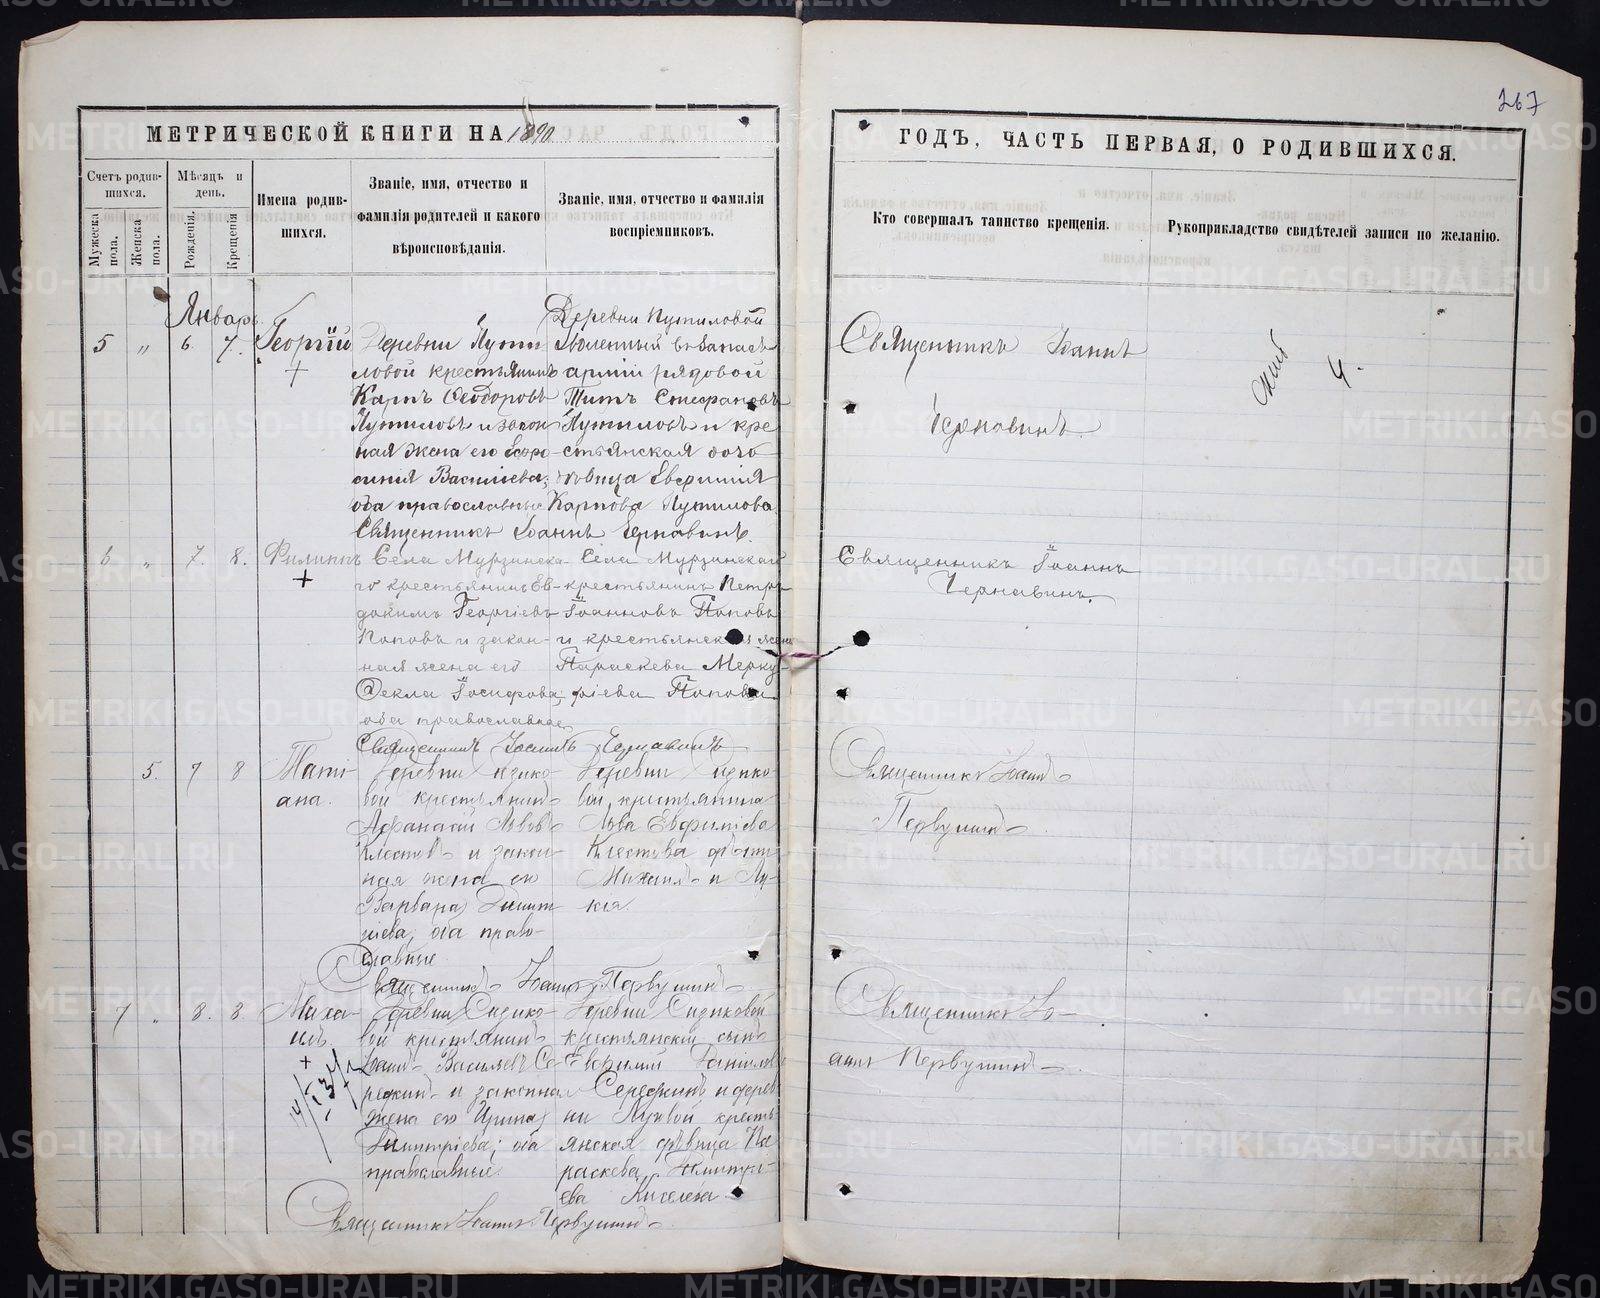 267
МЕТРИЧЕСКОЙ КНИГИ НА 1890
ГОДЪ, ЧАСТЬ ПЕРВАЯ, О РОДИВШИХСЯ.
Счетъ родив-
шихся.
Мужеска
пола.
Женска
пола.
Мѣсяцъ и
день.
Рожденія.
Крещенія
Имена родив-
шихся.
Званіе, имя, отчество и
фамилія родителей и какого
вѣроисповѣданія.
Званіе, имя, отчество и фамилія
воспріемниковъ.
Кто совершалъ таинство крещенія.
Рукоприкладство свидѣтелей записи по желанію.
Январь
5 " 6. 7. Георгій
Деревни Пути-
ловой крестьянинъ
Карпъ Ѳеодоровъ
Путиловъ и закон-
ная жена его
Васильева;
оба православные
Деревни Путиловой
уволенный въ запасъ
арміи рядовой
Титъ Стефановъ
Путиловъ и кре-
стьянская доче
Евфимія
Карпова Путилова
Священникъ Іоаннъ Чернавинъ.
Священникъ Іоаннъ
Чернавинъ.
4.
6. " 7. 8. Филиппъ
Села Мурзинска-
го крестьянинъ Ев-
докимъ Георгіевъ
Поповъ и закон-
ная жена его
Ѳекла Іосифова;
оба православные
Села Мурзинскаго
крестьянинъ Петръ
Іоанновъ Поповъ
и крестьянская жена
Параскева Мерку-
ріева Попова
Священникъ Іоаннъ Чернавинъ
Священникъ Іоаннъ
Чернавинъ.
5. 7 8 Тати-
ана.
Деревни
вой крестьянинъ
Афанасій Львовъ
и закон-
ная жена его
Варвара Димит-
ріева; оба право-
славные
Деревни
вой, крестьянина
Льва Евфиміева
Клестова дѣти
Михаилъ и Лу-
кія.
Священникъ Іоаннъ Первушинъ
Священникъ Іоаннъ
Первушинъ
7 " 8. 8. Миха-
илъ.
Деревни Сизико-
вой крестьянинъ
Іоаннъ Васильевъ Се-
режкинъ и законная
жена его Ирина
Димитріева; оба
православные
Деревни Сизиковой
крестьянскій сынъ
Евфимій Даніиловъ
Сережкинъ и дерев-
ни Луговой кресть-
янская дѣвица Па-
раскева Димитрі-
ева Киселева
Священникъ Іоаннъ Первушинъ
Священникъ Іо-
аннъ Первушинъ
METRIKI.GASO-URAL.RU